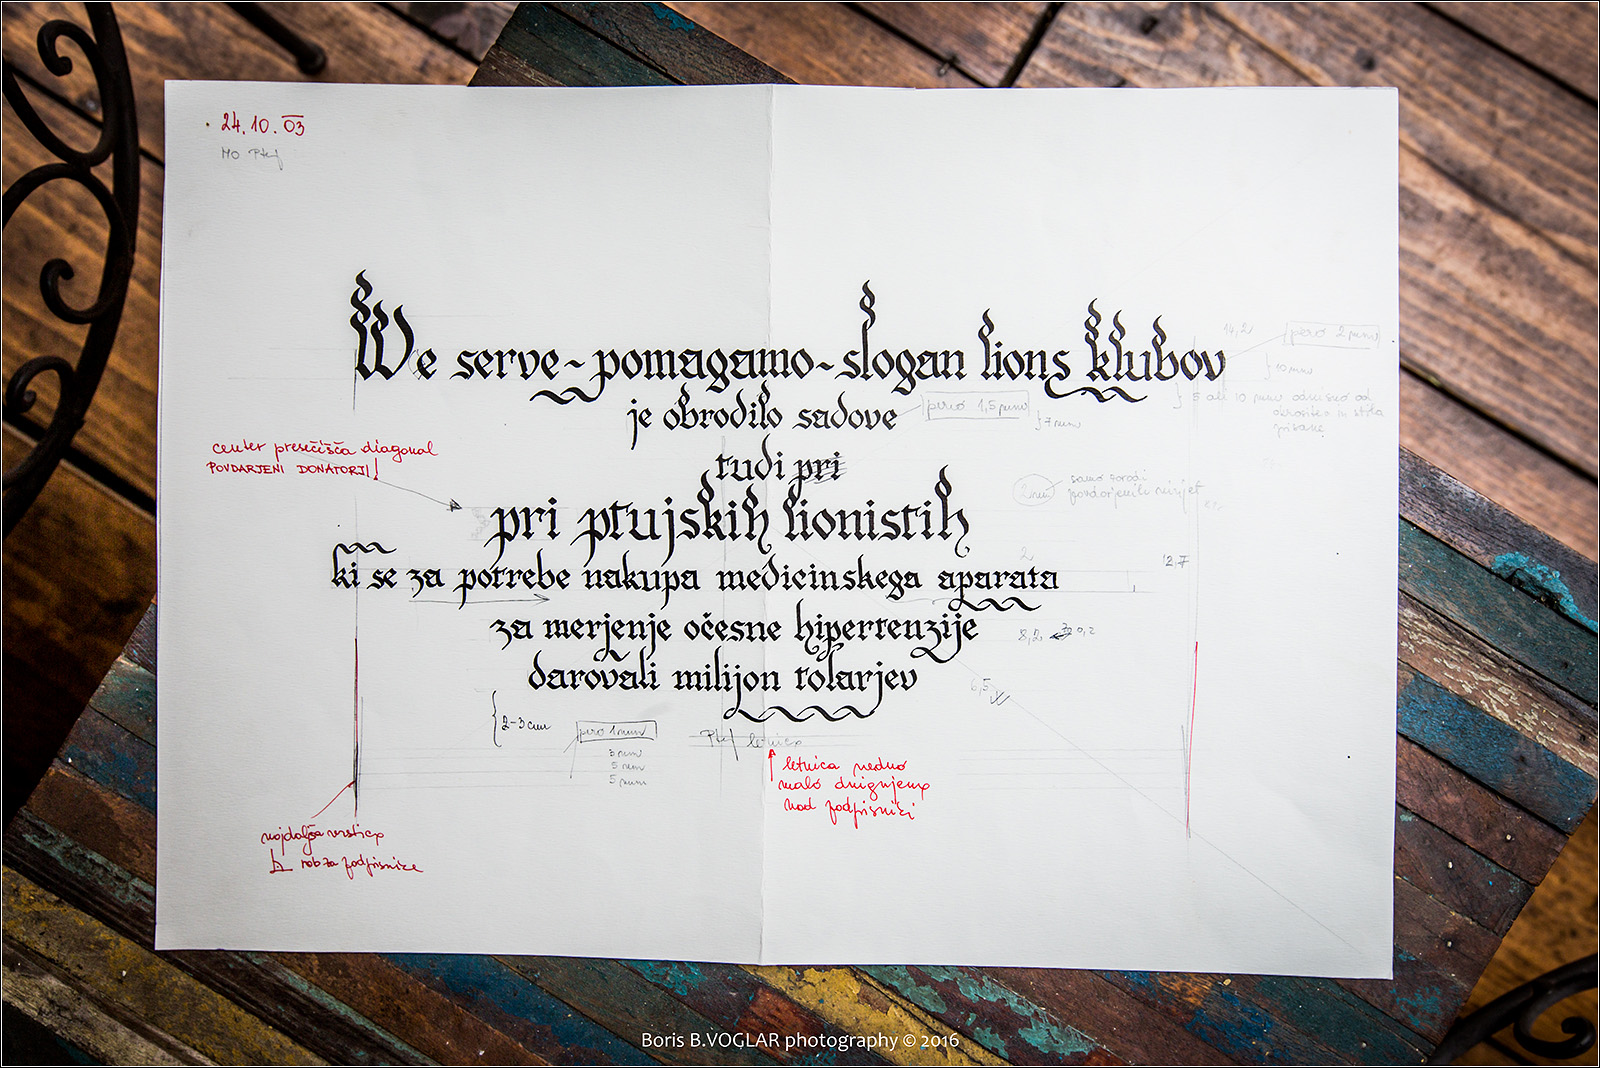 24.10.03
MO Ptuj
We serve - pomagamo - slogan lions klubov
14,2
pero 2 mm
10 mm
je obrodilo sadove
pero 1,5 mm
7 mm
5 ali 10 mm odvisno od
pisave
center presečišča diagonal
POVDARJENI DONATORJI!
tudi pri
2 mm
samo zaradi
pri ptujskih lionistih
2
12,7
ki se za potrebe nakupa medicinskega aparata
za merjenje očesne hipertenzije
8,2
darovali milijon tolarjev
6,5
2-3 cm
pero 1 mm
Ptuj letnica
3 mm
5 mm
5 mm
letnica vedno
malo dvignjena
nad podpisnici
najdaljša vrstica
rob za podpisnice
Boris B.VOGLAR photography © 2016